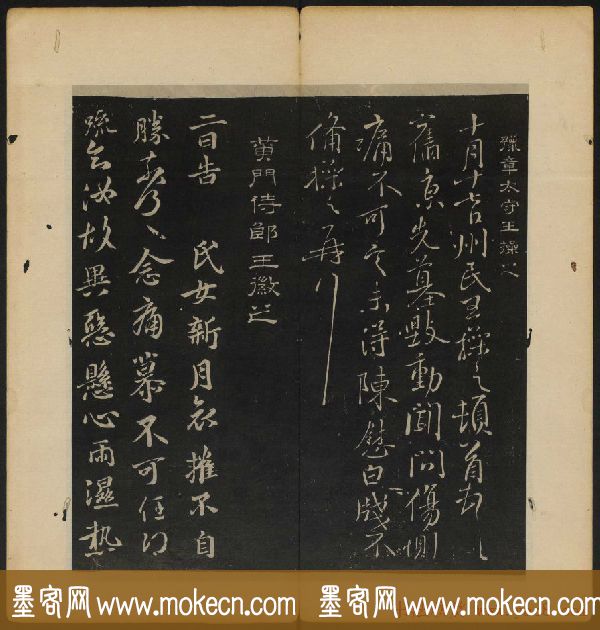 豫章太守王操之
十月十七日州民王操之頓首
舊京先墓毀動聞問傷惻
痛不可言未得陳慰白牋不
備操之再拜
黃門侍郎王徽之
二日告 氏女新月哀摧不自
勝奈何〻念痛慕不可任得
疏知汝故異惡懸心雨濕熱
墨客网 www.mokecn.com 墨客网 www.mokecn.com